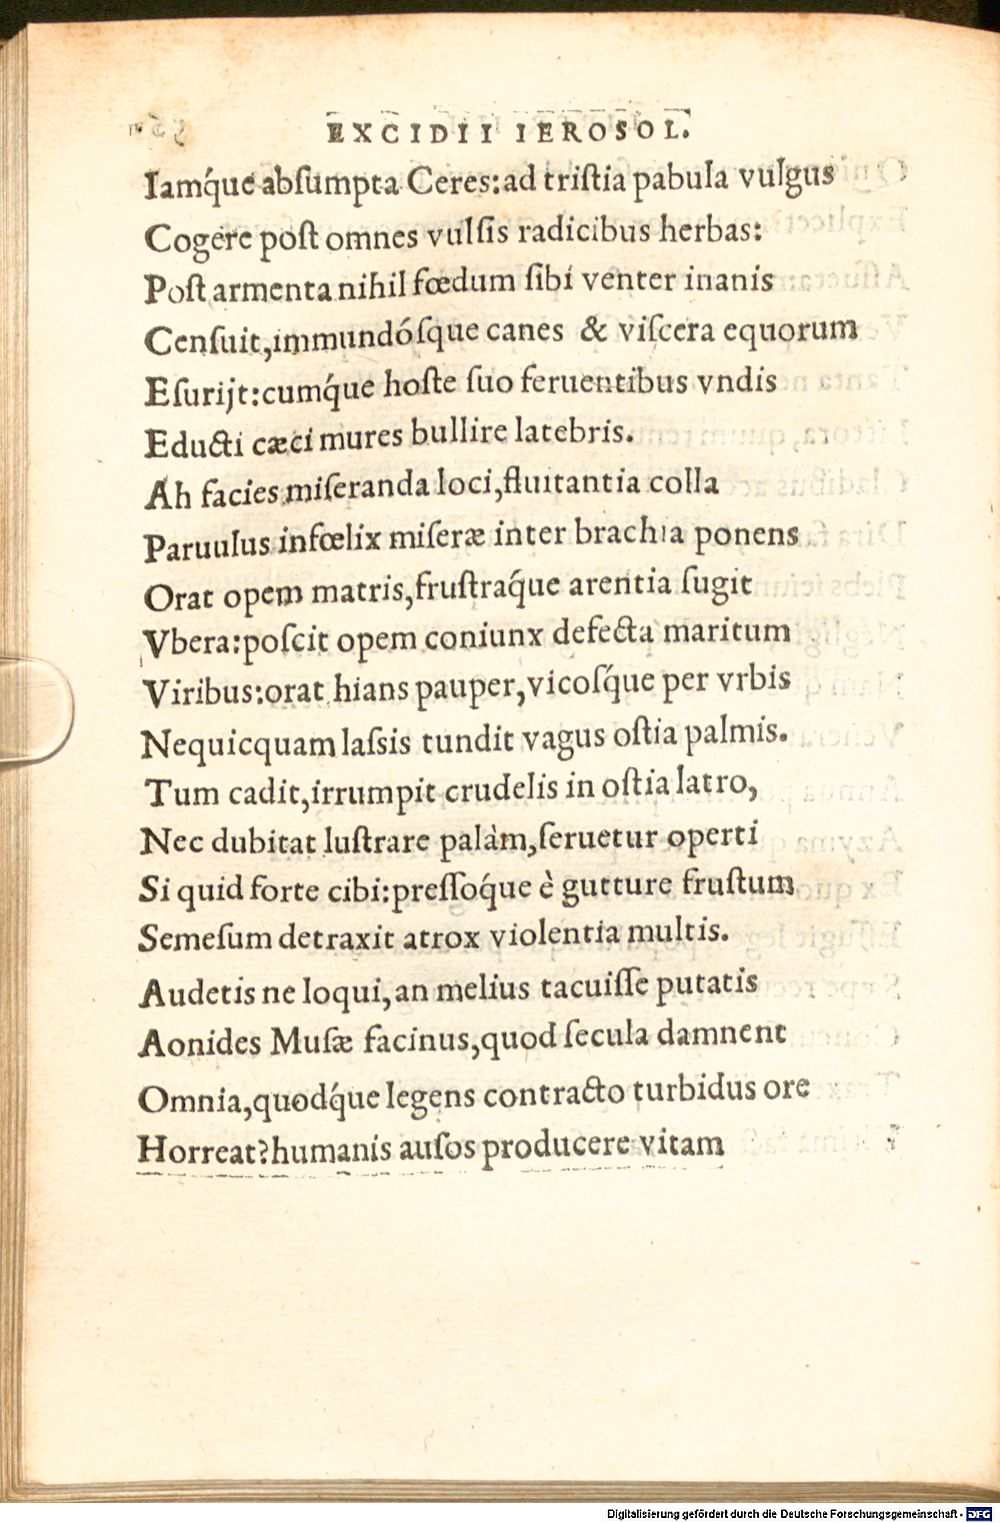 EXCIDII IEROSOL.
Iamq́ue absumpta Ceres:ad tristia pabula vulgus
Cogere post omnes vulsis radicibus herbas:
Post armenta nihil fœdum sibi venter inanis
Censuit,immundósque canes & viscera equorum
Esurijt:cumq́ue hoste suo feruentibus vndis
Educti cæci mures bullire latebris.
Ah facies miseranda loci,fluitantia colla
Paruulus infœlix miseræ inter brachia ponens
Orat opem matris,frustraq́ue arentia sugit
Vbera:poscit opem coniunx defecta maritum
Viribus:orat hians pauper,vicosq́ue per vrbis
Nequicquam lassis tundit vagus ostia palmis.
Tum cadit,irrumpit crudelis in ostia latro,
Nec dubitat lustrare palàm,seruetur operti
Si quid forte cibi:pressoq́ue è gutture frustum
Semesum detraxit atrox violentia multis.
Audetis ne loqui,an melius tacuisse putatis
Aonides Musæ facinus,quod secula damnent
Omnia,quodq́ue legens contracto turbidus ore
Horreat?humanis ausos producere vitam
Digitalisierung gefördert durch die Deutsche Forschungsgemeinschaft - DFG